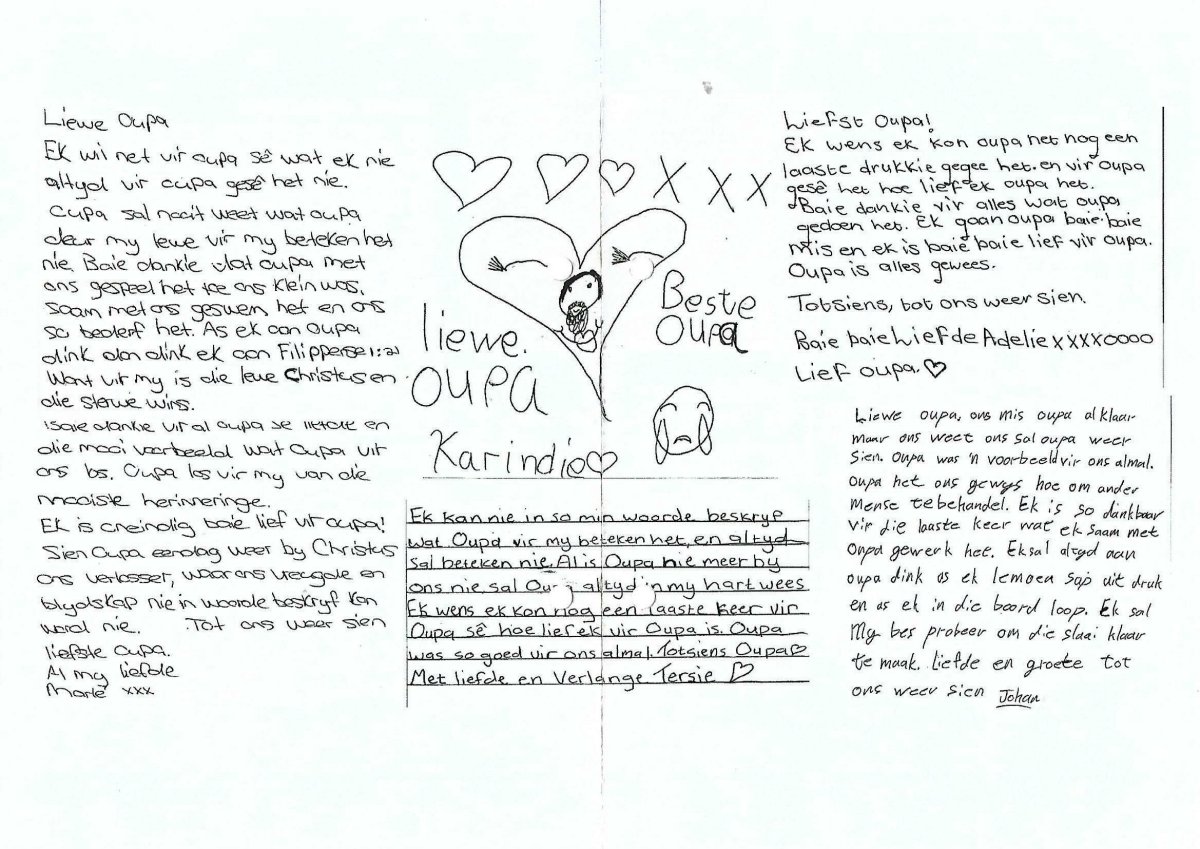 Liewe Oupa
Ek wil net vir oupa sê wat ek nie
altyd vir oupa gesê het nie.
Oupa sal nooit weet wat oupa
deur my lewe vir my beteken het
nie. Baie dankie dat oupa met
ons gespeel het toe ons klein was,
saam met ons geswem het en ons
so bederf het. As ek aan Oupa
dink dan dink ek aan Filippense 1:21
Want vir my is die lewe Christus en
die sterwe wins.
Baie dankie vir al oupa se liefde en
die mooi voorbeeld wat Oupa vir
ons los. Oupa los vir my van die
mooiste herinneringe.
Ek is oneindig baie lief vir oupa!
Sien Oupa eendag weer by Christus
ons verlosser, waar ons vreugde en
blydskap nie in woorde beskryf kan
word nie. Tot ons weer sien
liefste oupa.
Al my liefde
Marlé xxx
X X X
liewe.
oupa
Beste
oupa
Karindie
Ek kan nie in so min woorde beskryf
wat Oupa vir my beteken het, en altyd
sal beteken nie. Al is Oupa nie meer by
ons nie sal altyd 'n my hart wees
Ek wens ek kon nog een laaste keer vir
Oupa sê hoe lief ek vir Oupa is. Oupa
was so goed vir ons almal. Totsiens Oupa♡
Met liefde en Verlange Tersie ♡
Liefst Oupa!
Ek wens ek kon oupa net nog een
laaste drukkie gegee het. en vir oupa
gesê het hoe lief ek oupa het.
Baie dankie vir alles wat oupa
gedoen het. Ek gaan oupa baie baie
mis en ek is baie baie lief vir oupa.
Oupa is alles gewees.
Totsiens, tot ons weer sien.
Baie baie Liefde Adelie xxxxoooo
Lief oupa. ♡
Liewe oupa, ons mis oupa al klaar
maar ons weet ons sal oupa weer
sien. Oupa was 'n voorbeeld vir ons almal.
Oupa het ons gewys hoe om ander
mense te behandel. Ek is so dankbaar
vir die laaste keer wat ek saam met
Oupa gewerk het. Ek sal altyd aan
oupa dink as ek lemoen sap uit druk
en as ek in die boord loop. Ek sal
My bes probeer om die slaai klaar
te maak. liefde en groete tot
ons weer sien Johan